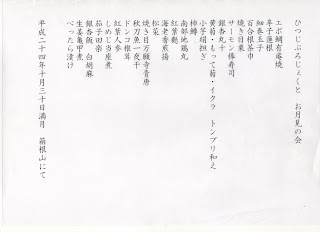 ひつじぷろじぇくと　お月見の会
エボ鯛有庵焼
辛子蓮根
細巻玉子
百合根茶巾
焼き目栗
サーモン棒寿司
銀杏丸十
黄菊・もって菊・イクラ　トンブリ和え
小芋絹担ぎ
柿鱒
南部地鶏丸
紅葉麩
海老香煎揚
松葉
焼き目万願寺青唐
秋刀魚一夜干
ドンコ椎茸
紅葉人参
しめじ当座煮
茄子田楽
銀杏飯　白胡麻
生姜亀甲煮
べったら漬け
平成二十四年十月三十日満月　箱根山にて